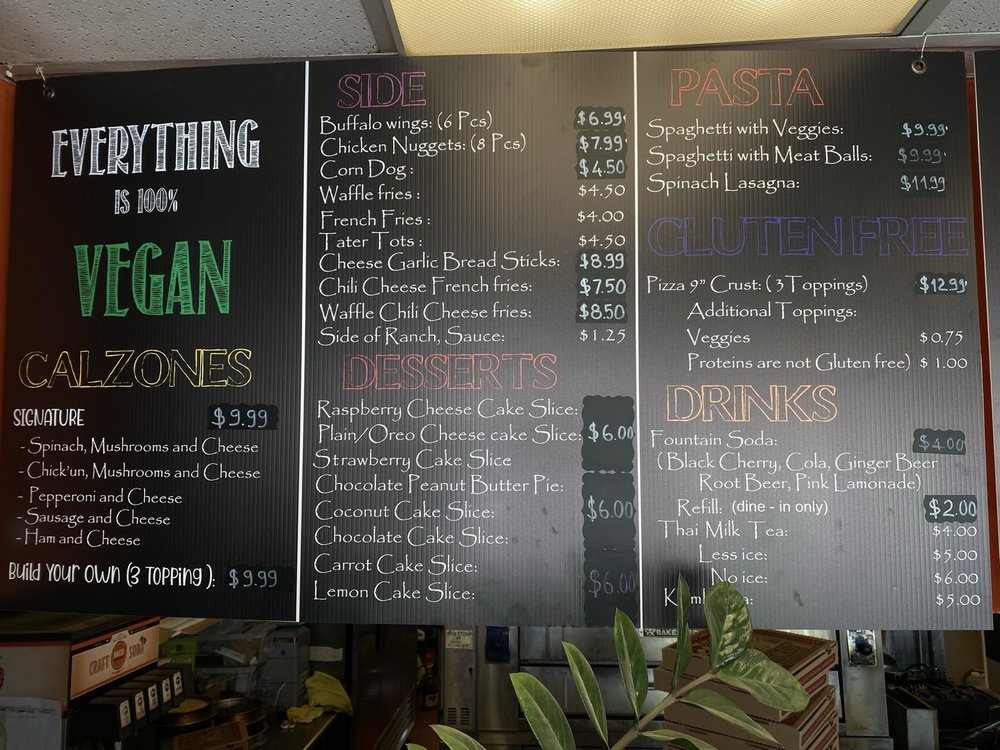 EVERYTHING
IS 100%
VEGAN
CALZONES
SIGNATURE $9.99
- Spinach, Mushrooms and Cheese
- Chick'un, Mushrooms and Cheese
- Pepperoni and Cheese
- Sausage and Cheese
- Ham and Cheese
Build Your Own (3 Topping ): $9.99
SIDE
Buffalo wings: (6 Pcs) $6.99
Chicken Nuggets: (8 Pcs) $7.99
Corn Dog : $4.50
Waffle fries : $4.50
French Fries : $4.00
Tater Tots : $4.50
Cheese Garlic Bread Sticks: $8.99
Chili Cheese French fries: $7.50
Waffle Chili Cheese fries: $8.50
Side of Ranch, Sauce: $1.25
DESSERTS
Raspberry Cheese Cake Slice:
Plain/Oreo Cheese cake Slice: $6.00
Strawberry Cake Slice
Chocolate Peanut Butter Pie:
Coconut Cake Slice: $6.00
Chocolate Cake Slice:
Carrot Cake Slice:
Lemon Cake Slice: $6.00
PASTA
Spaghetti with Veggies: $9.99
Spaghetti with Meat Balls: $9.99
Spinach Lasagna: $11.99
GLUTEN FREE
Pizza 9" Crust: ( 3 Toppings) $12.99
Additional Toppings:
Veggies $ 0.75
Proteins are not Gluten free) $ 1.00
DRINKS
Fountain Soda: $4.00
( Black Cherry, Cola, Ginger Beer
Root Beer, Pink Lamonade)
Refill: (dine - in only) $2.00
Thai Milk Tea: $4.00
Less ice: $5.00
No ice: $6.00
$5.00
CRAFT SODA
BAKE